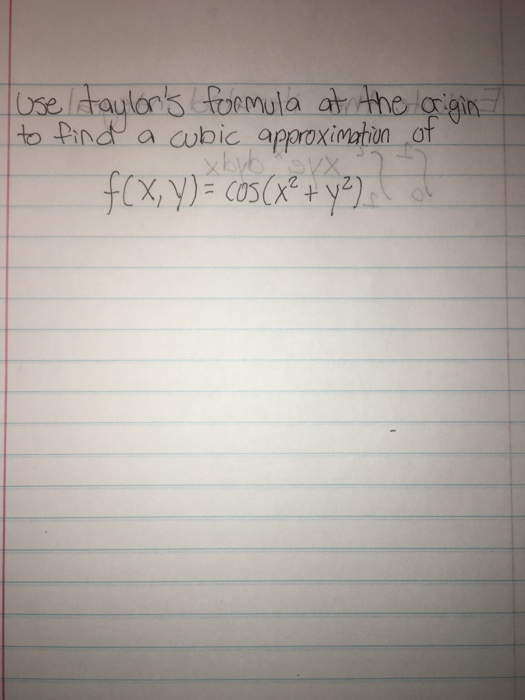 Use taylor's formula at the origin
to find a cubic approximation of
f(x, y) = cos(x² + y²)